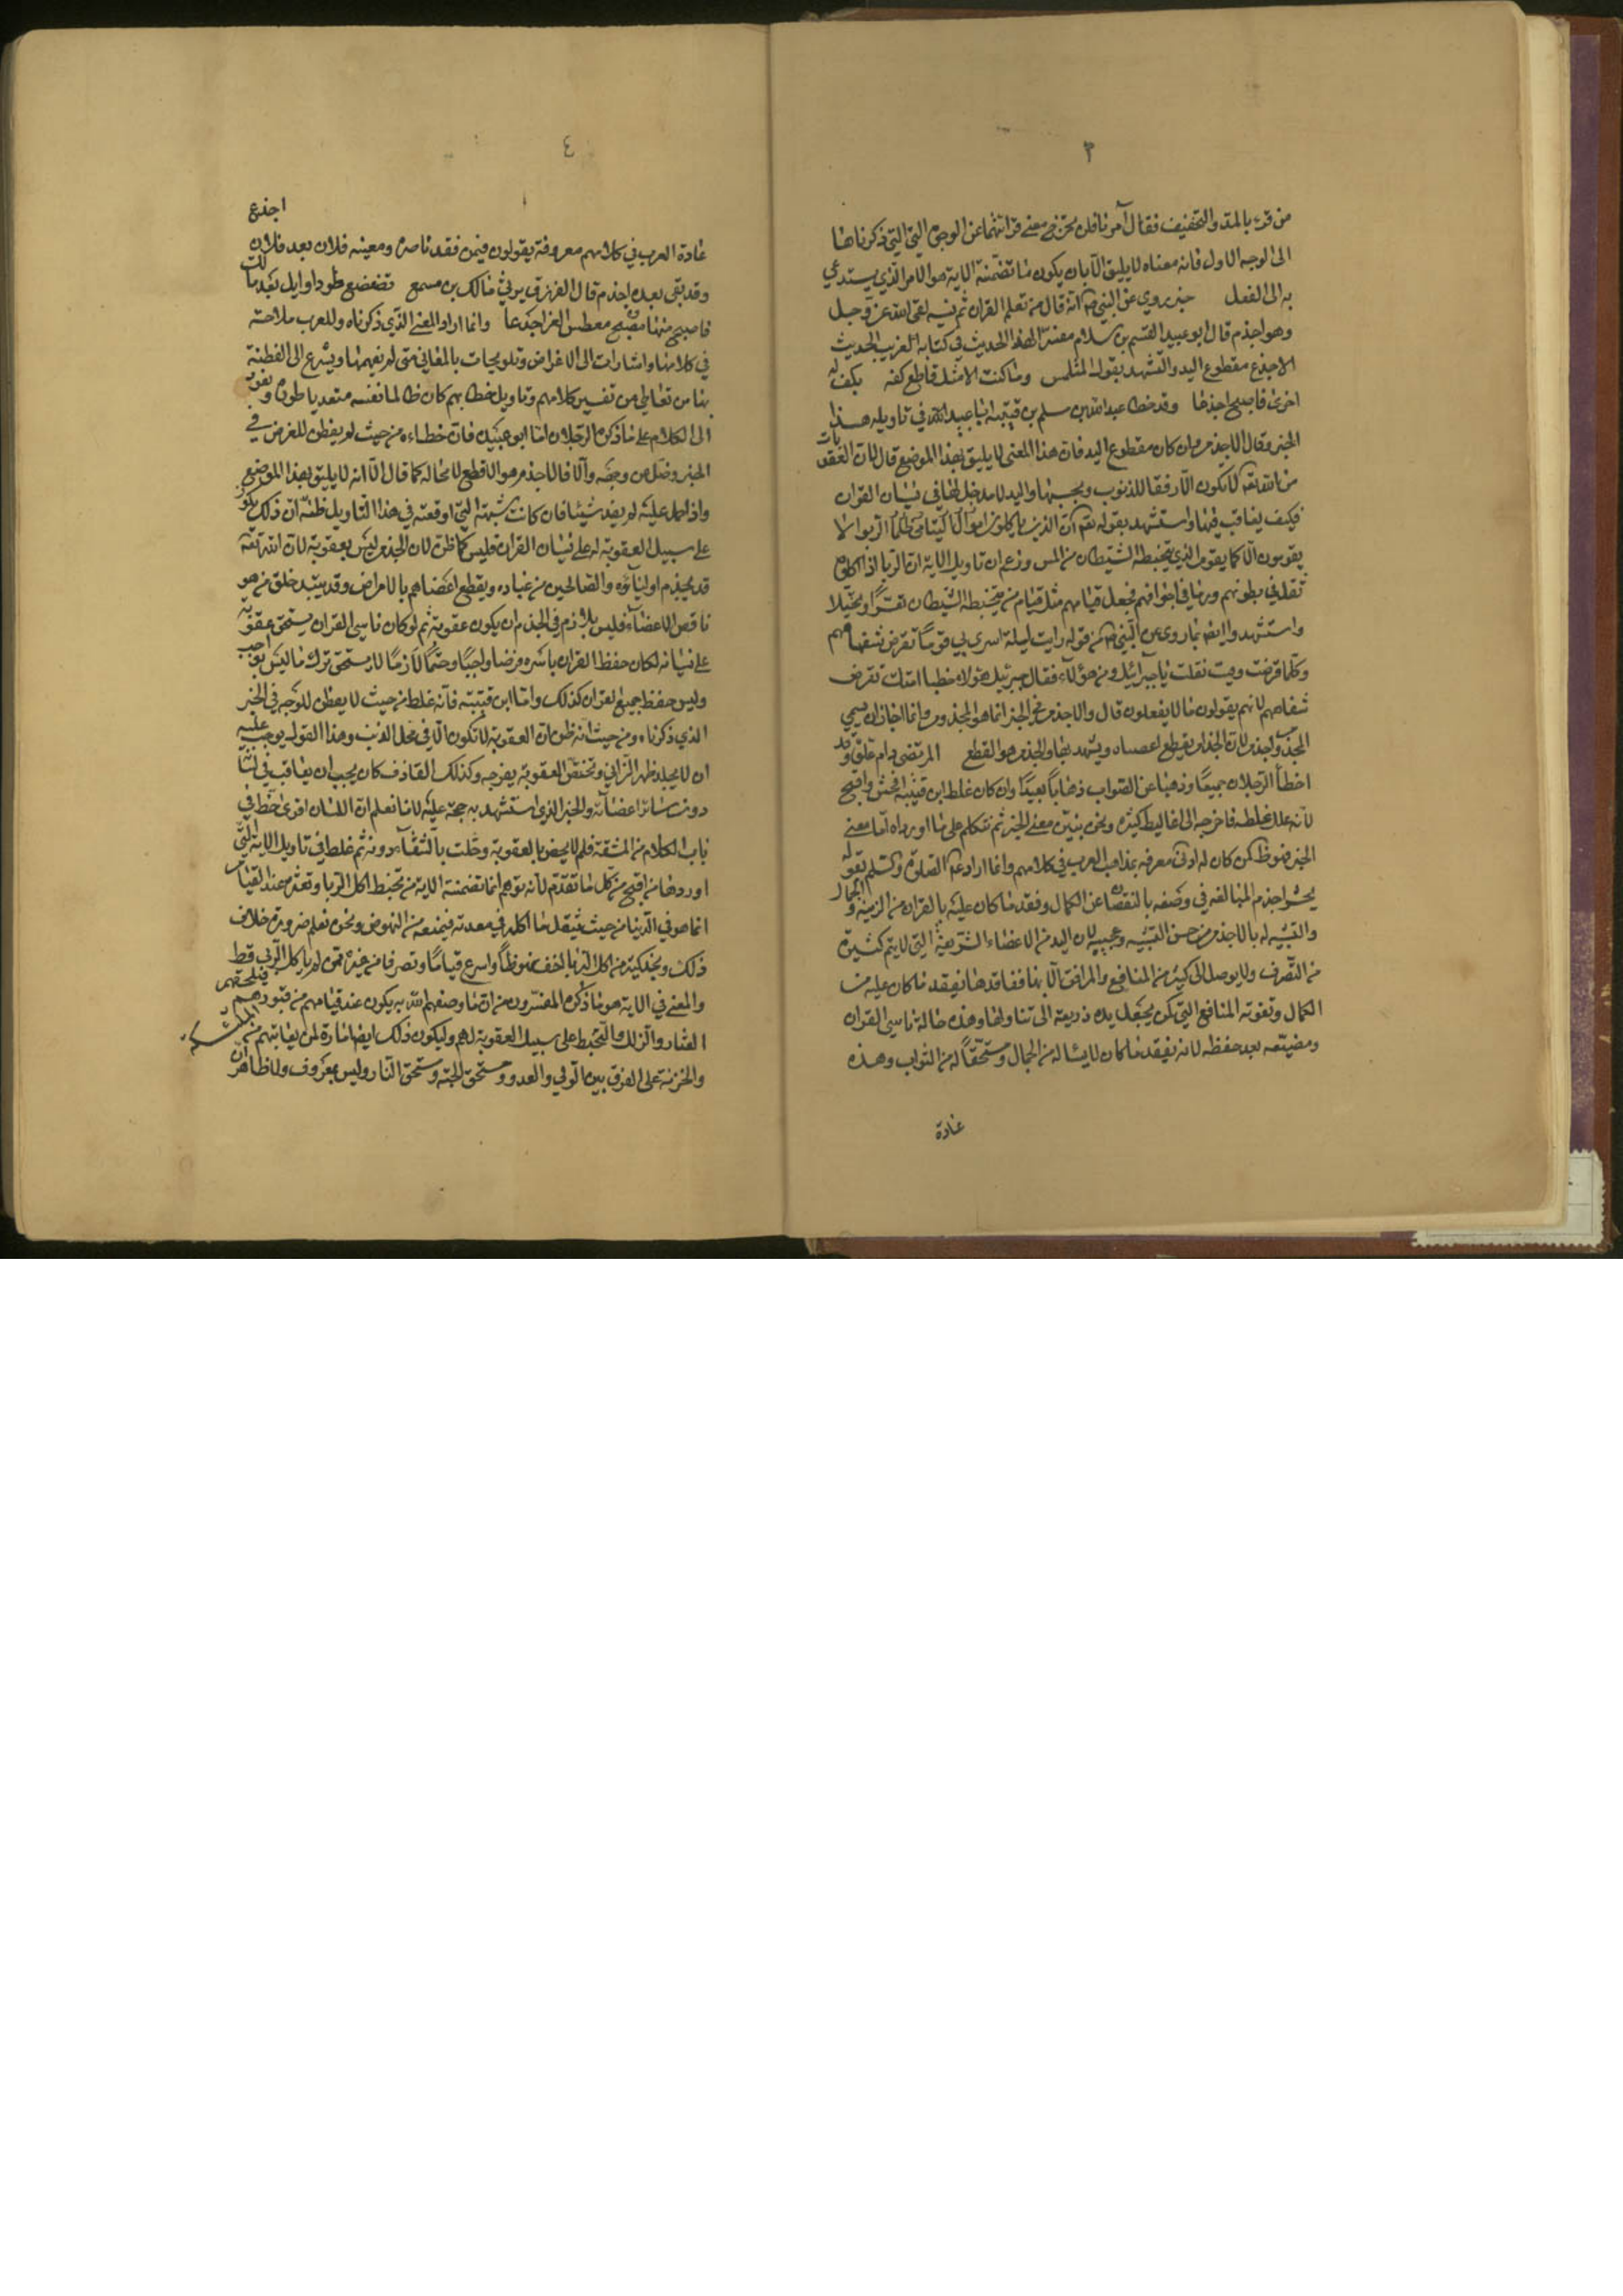 ٣
من قرء بالمد والتخفيف فقال آمرنا فلن يخرج معنى قرائتهما عن الوجوه التي ذكرناها
الى الوجه الاول فانه معناه لا يليق الا بان يكون ما تضمنته الاية هو الامر الذي يستدعي
به الى الفعل خبر يروي عن النبي ص انه قال من تعلم القران ثم نسيه لقى الله عز وجل
وهو اجذم قال ابو عبيد القسم بن سلام مفسرا لهذا الحديث في كتابه الغريب الحديث
الاجذع مقطوع اليد والتشهد بقول المتلمس وما كنت الا مثل قاطع كفه بكف له
اخرى فاصبح اجذما وقد خطا عبد الله بن سلم بن قتيبة ابا عبيد الله في تاويله هذا
الخبر وقال الاجذم وان كان مقطوع اليد فان هذا المعنى لا يليق بهذا الموضع قال لان العقوبات
من الله تعه لا يكون الا وفقا للذنوب وبحسبها واليد لا مدخل لها في نسيان القران
فكيف يعاقب فيها واستشهد بقوله تعه ان الذين ياكلون اموال اليتامى ظلما الربوا لا
يقومون الا كما يقوم الذي يتخبطه الشيطان من المس وزعم ان تاويل الاية ان الربا اذا اكلوه
ثقل في بطونهم وربا في اجوافهم فجعل قيامهم مثل قيام من يتخبطه الشيطان تعثرا وتخبلا
واستشهد وايضه بما روى عن النبي ص من قوله رايت ليلة اسري بي قوما تقرض شفاههم
وكلما قرضت وفيت فقلت يا جبرائيل ومن هؤلاء فقال جبرئيل هؤلاء خطبا امتك تقرض
شفاههم لانهم يقولون ما لا يفعلون قال والاجذم في الخبر انما هو المجذوم وانما جاز ان يسمي
المجذوم اجذم لان الجذام يقطع اعضاه ويشهد بها والجذم هو القطع المرتضى دام علوه قد
اخطأ الرجلان جميعا وذهبا عن الصواب ذهابا بعيدا وان كان غلط ابن قتيبة افحش واقبح
لانه علل غلطه فاخرجه الى اغاليط كثيرة ونحن نبين معنى الخبر ثم نتكلم على ما اورداه اما معنى
الخبر فهو ظ لمن كان له ادنى معرفه بمذاهب العرب في كلامهم وانما اراد عليه الصلوة والسلم بقوله
يحشر اجذم المبالغه في وصفه بالنقصان عن الكمال وفقد ما كان عليه بالقران من الزينة والجمال
والتشبيه له بالاجذم من حسن التشبيه وعجيبه لان اليد من الاعضاء الشريفة التي لا يتم كثيرة
من التصرف ولا يوصل الى كثير من المنافع والمرافق الا بها ففاقدها يفقد ما كان عليه من
الكمال وتفوته المنافع التي كن يجعل يده ذريعة الى تناولها وهذه حالة ناسي القران
ومضيعه بعد حفظه لانه يفقد ما كان لابسا له من الجمال ومستحقا له من الثواب وهذه
عادة
٤
عادة العرب في كلامهم معروفة يقولون فيمن فقد ناصره ومعينه فلان بعد فلان اجذع
وقد بقى بعده اجذم قال الفرزدق يرثي مالك بن مسمع تضعضع طودا وايل بعد مالك
فاصبح منها معطس العز اجدعا وانما اراد المعنى الذي ذكرناه وللعرب ملاحة
في كلامها واشارات الى الاغراض وتلويحات بالمعاني متى لم يفهمها ويسرع الى الفطنة
بها من تعاطى من تفسير كلامهم وتاويل خطابهم كان ظالما نفسه متعديا طوره ونعود
الى الكلام على ما ذكره الرجلان اما ابو عبيد فان خطاءه من حيث لم يفطن للغرض في
الخبر وضل عن وجهه والا فالاجذم هو الاقطع لا محاله كما قال الا انه لا يليق بهذا الموضع
واذا حمل عليه لم يفد شيئا فان كانت شبهته التي اوقعته في هذا التاويل ظنه ان ذلك يكون
على سبيل العقوبة له على نسيان القران فليس كما ظن لان الجذم ليس بعقوبة لان الله تعه
قد يجذم اولياؤه والصالحين من عباده ويقطع اعضاهم بالامراض وقد يبتدء خلق من هو
ناقص الاعضاء فليس بلازم في الجذم ان يكون عقوبة ثم لو كان ناسي القران يستحق عقوبة
على نسيانه لكان حفظ القران باسره فرضا واجبا وحتما لازما لا يستحق ترك ما ليس بواجب
وليس حفظ جميع القران كذلك واما ابن قتيبه فانه غلط من حيث لا يفطن للوجه في الخبر
الذي ذكرناه ومن حيث انه ظن ان العقوبة لا تكون الا في محل الذنب وهذا القول يوجب عليه
ان لا يجلد ظهر الزاني وتختص العقوبة بفرجه وكذلك القاذف كان يجب ان يعاقب في لسانه
دون سائر اعضائه والخبر الذي استشهد به حجة عليه لانا نعلم ان اللسان اقوى حظ في
باب الكلام من الشفة فلم لا يخص بالعقوبة وحلت بالشفاه دونه ثم غلط في تاويل الاية التي
اوردها من اقبح من كل ما تقدم لانه توهم انما تضمنته الاية من تخبط اكل الربا وتعثره عند القيام
انما هو في الدنيا من حيث يثقل ما اكله في معدته فيمنعه من النهوض ونحن نعلم ضرورة خلاف
ذلك ونجد كثيرا من اكل الربا اخف نهوظا واسرع قياما وتصرفا من غيره ممن لم ياكل الربى قط
والمعنى في الاية هو ما ذكره المفسرون من ان ما وصفهم الله به يكون عند قيامهم من قبورهم فيلحقهم
العثار والزلل والتخبط على سبيل العقوبة لهم وليكون ذلك ايضا امارة لمن يعاينهم من الملائكة
والخزنة على الفرق بين الولي والعدو ومستحق الجنه ومستحق النار وليس بمعروف ولا ظاهر ان